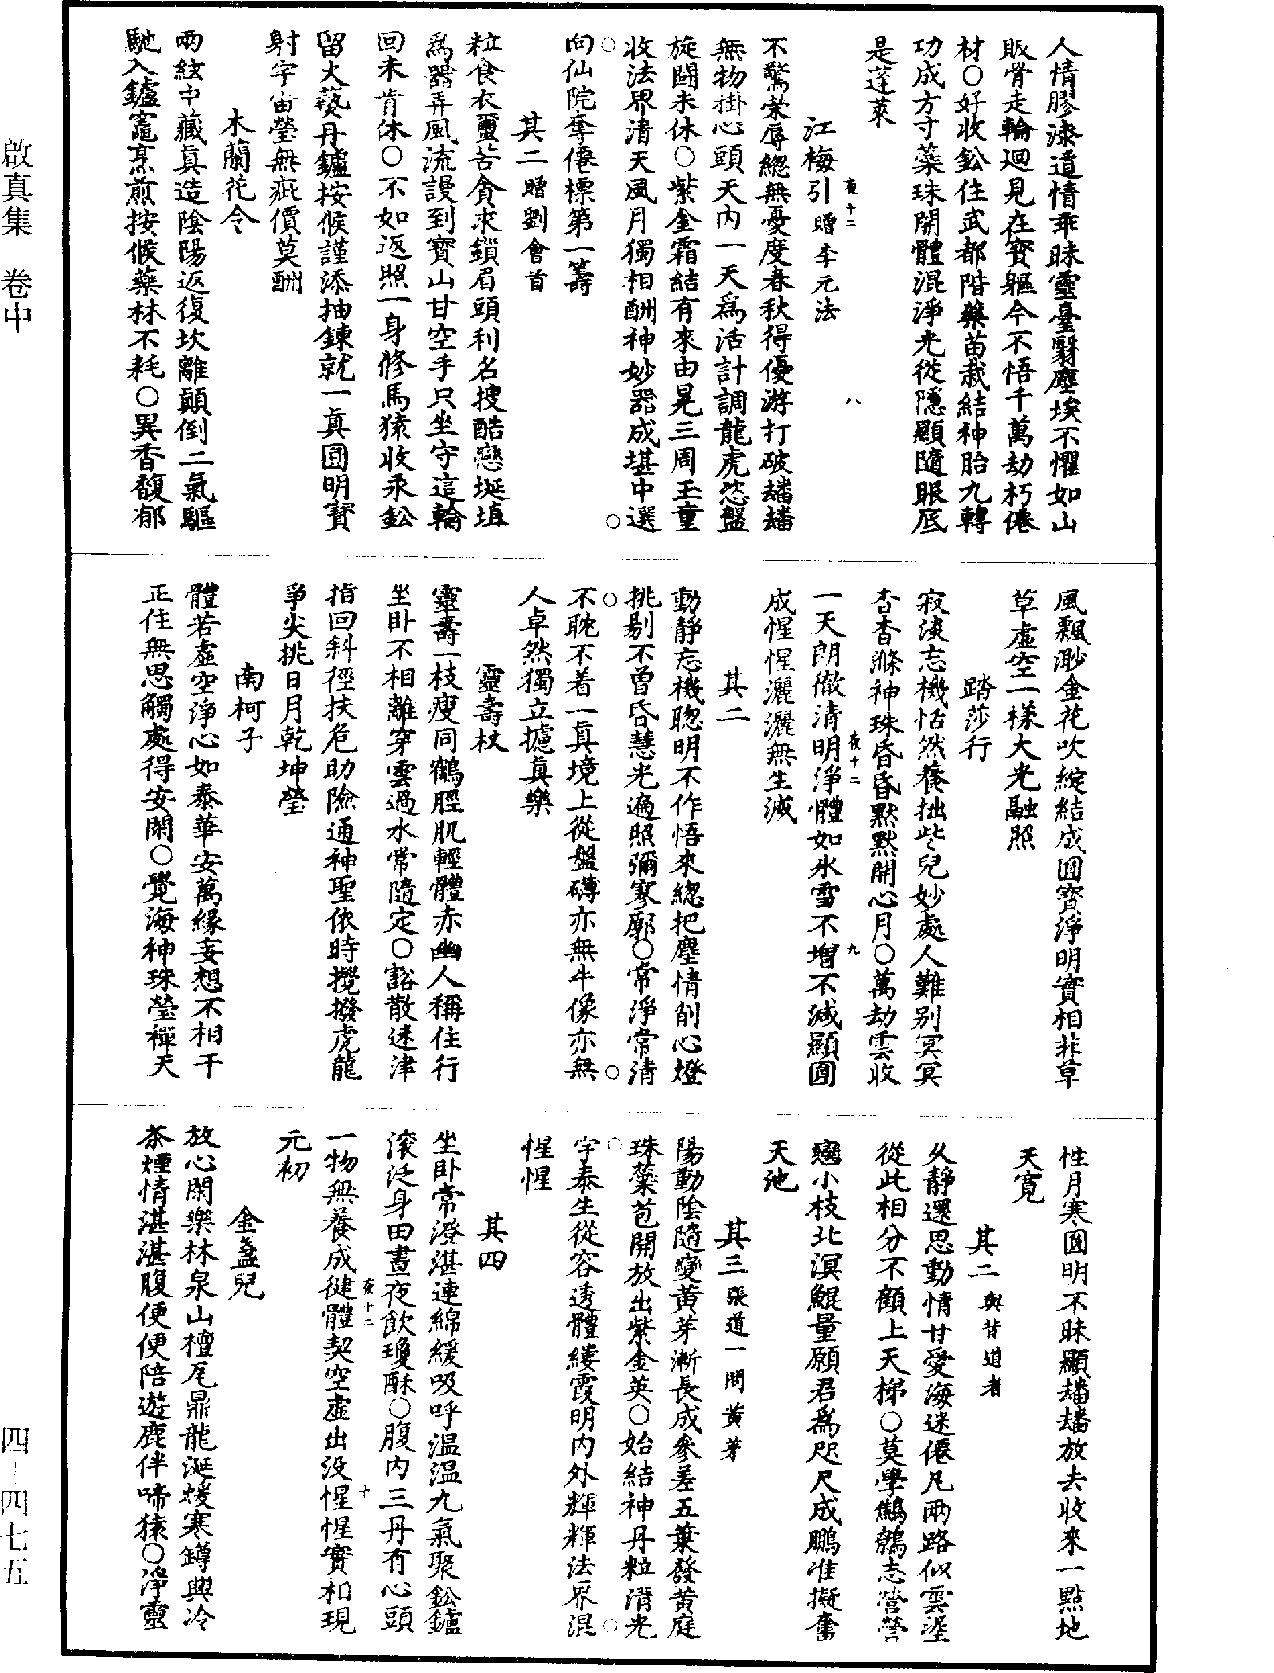 啟真集 卷中
人情膠漆遣情乖昧靈臺翳塵埃不懼如山
販骨走輪廻見在寶軀今不悟千萬劫朽僊
材○好收鈆住武都階藥苗栽結神胎九轉
功成方寸蘂珠開體混淨光從隱顯隨眼底
是蓬萊
江梅引 贈李元法
夜十二 八
不驚榮辱緫無憂度春秋得優游打破𤳖𤳖
無物掛心頭天內一天為活計調龍虎恣盤
旋鬪未休○紫金霜結有來由晃三周玉童
收法界清天風月獨相酬神妙器成堪中選
向仙院奪僊標第一籌
其二 贈劉會首
粒食衣蠒苦貪求鎖眉頭利名搜酷戀埏埴
為器弄風流謾到寶山甘空手只坐守這輪
回未肯休○不如返照一身修馬猿收汞鈆
留大藥丹鑪按候謹添抽鍊就一真圎明寶
射宇宙瑩無疵價莫酬
木蘭花令
兩絃中藏真造陰陽返復坎離顛倒二氣驅
馳入鑪竈烹煎按候藥材不耗○異香馥郁
風飄渺金花吹綻結成圎寶淨明實相非草
草虛空一樣大光融照
踏莎行
寂淡忘機怡然養拙些兒妙處人難別冥冥
杳杳滌神珠昏昏默默開心月○萬劫雲收
一天朗徹清明淨體如氷雪不增不減顯圎
夜十二 九
成惺惺灑灑無生滅
其二
動靜忘機聰明不作悟來緫把塵情削心燈
挑剔不曾昏慧光遍照彌寥廓○常淨常清
不耽不着一真境上從盤礴亦無牛像亦無
人卓然獨立攄真樂
靈壽杖
靈壽一枝瘦同鶴脛肌輕體赤幽人稱住行
坐卧不相離穿雲過水常隨定○豁散迷津
指回斜徑扶危助險通神聖依時攪撥虎龍
爭尖挑日月乾坤瑩
南柯子
體若虛空淨心如泰華安萬緣妄想不相干
正住無思觸處得安閑○覺海神珠瑩禪天
性月寒圎明不昧顯𤳖𤳖放去收來一點地
天寬
其二 與苷道者
久靜還思動情甘愛海迷僊凡兩路似雲埿
從此相分不顧上天梯○莫學鷦鷯志營營
戀小枝北溟鯤量願君為咫尺成鵬准擬奮
天池
其三 張道一問黄芽
陽動陰隨變黄芽漸長成參差五葉發黄庭
珠蘂苞開放出紫金英○始結神丹粒清光
宇泰生從容透體縷霞明內外輝輝法界混
惺惺
其四
坐卧常澄湛連綿緩吸呼温温九氣聚鈆鑪
滾泛身田晝夜飲瓊酥○腹內三丹有心頭
一物無養成健體契空虛出没惺惺實相現
夜十二 十
元初
金盞兒
放心閑樂林泉山檀瓦鼎龍涎煖寒罇與冷
茶煙情湛湛腹便便陪遊鹿伴啼猿○淨靈
四-四七五